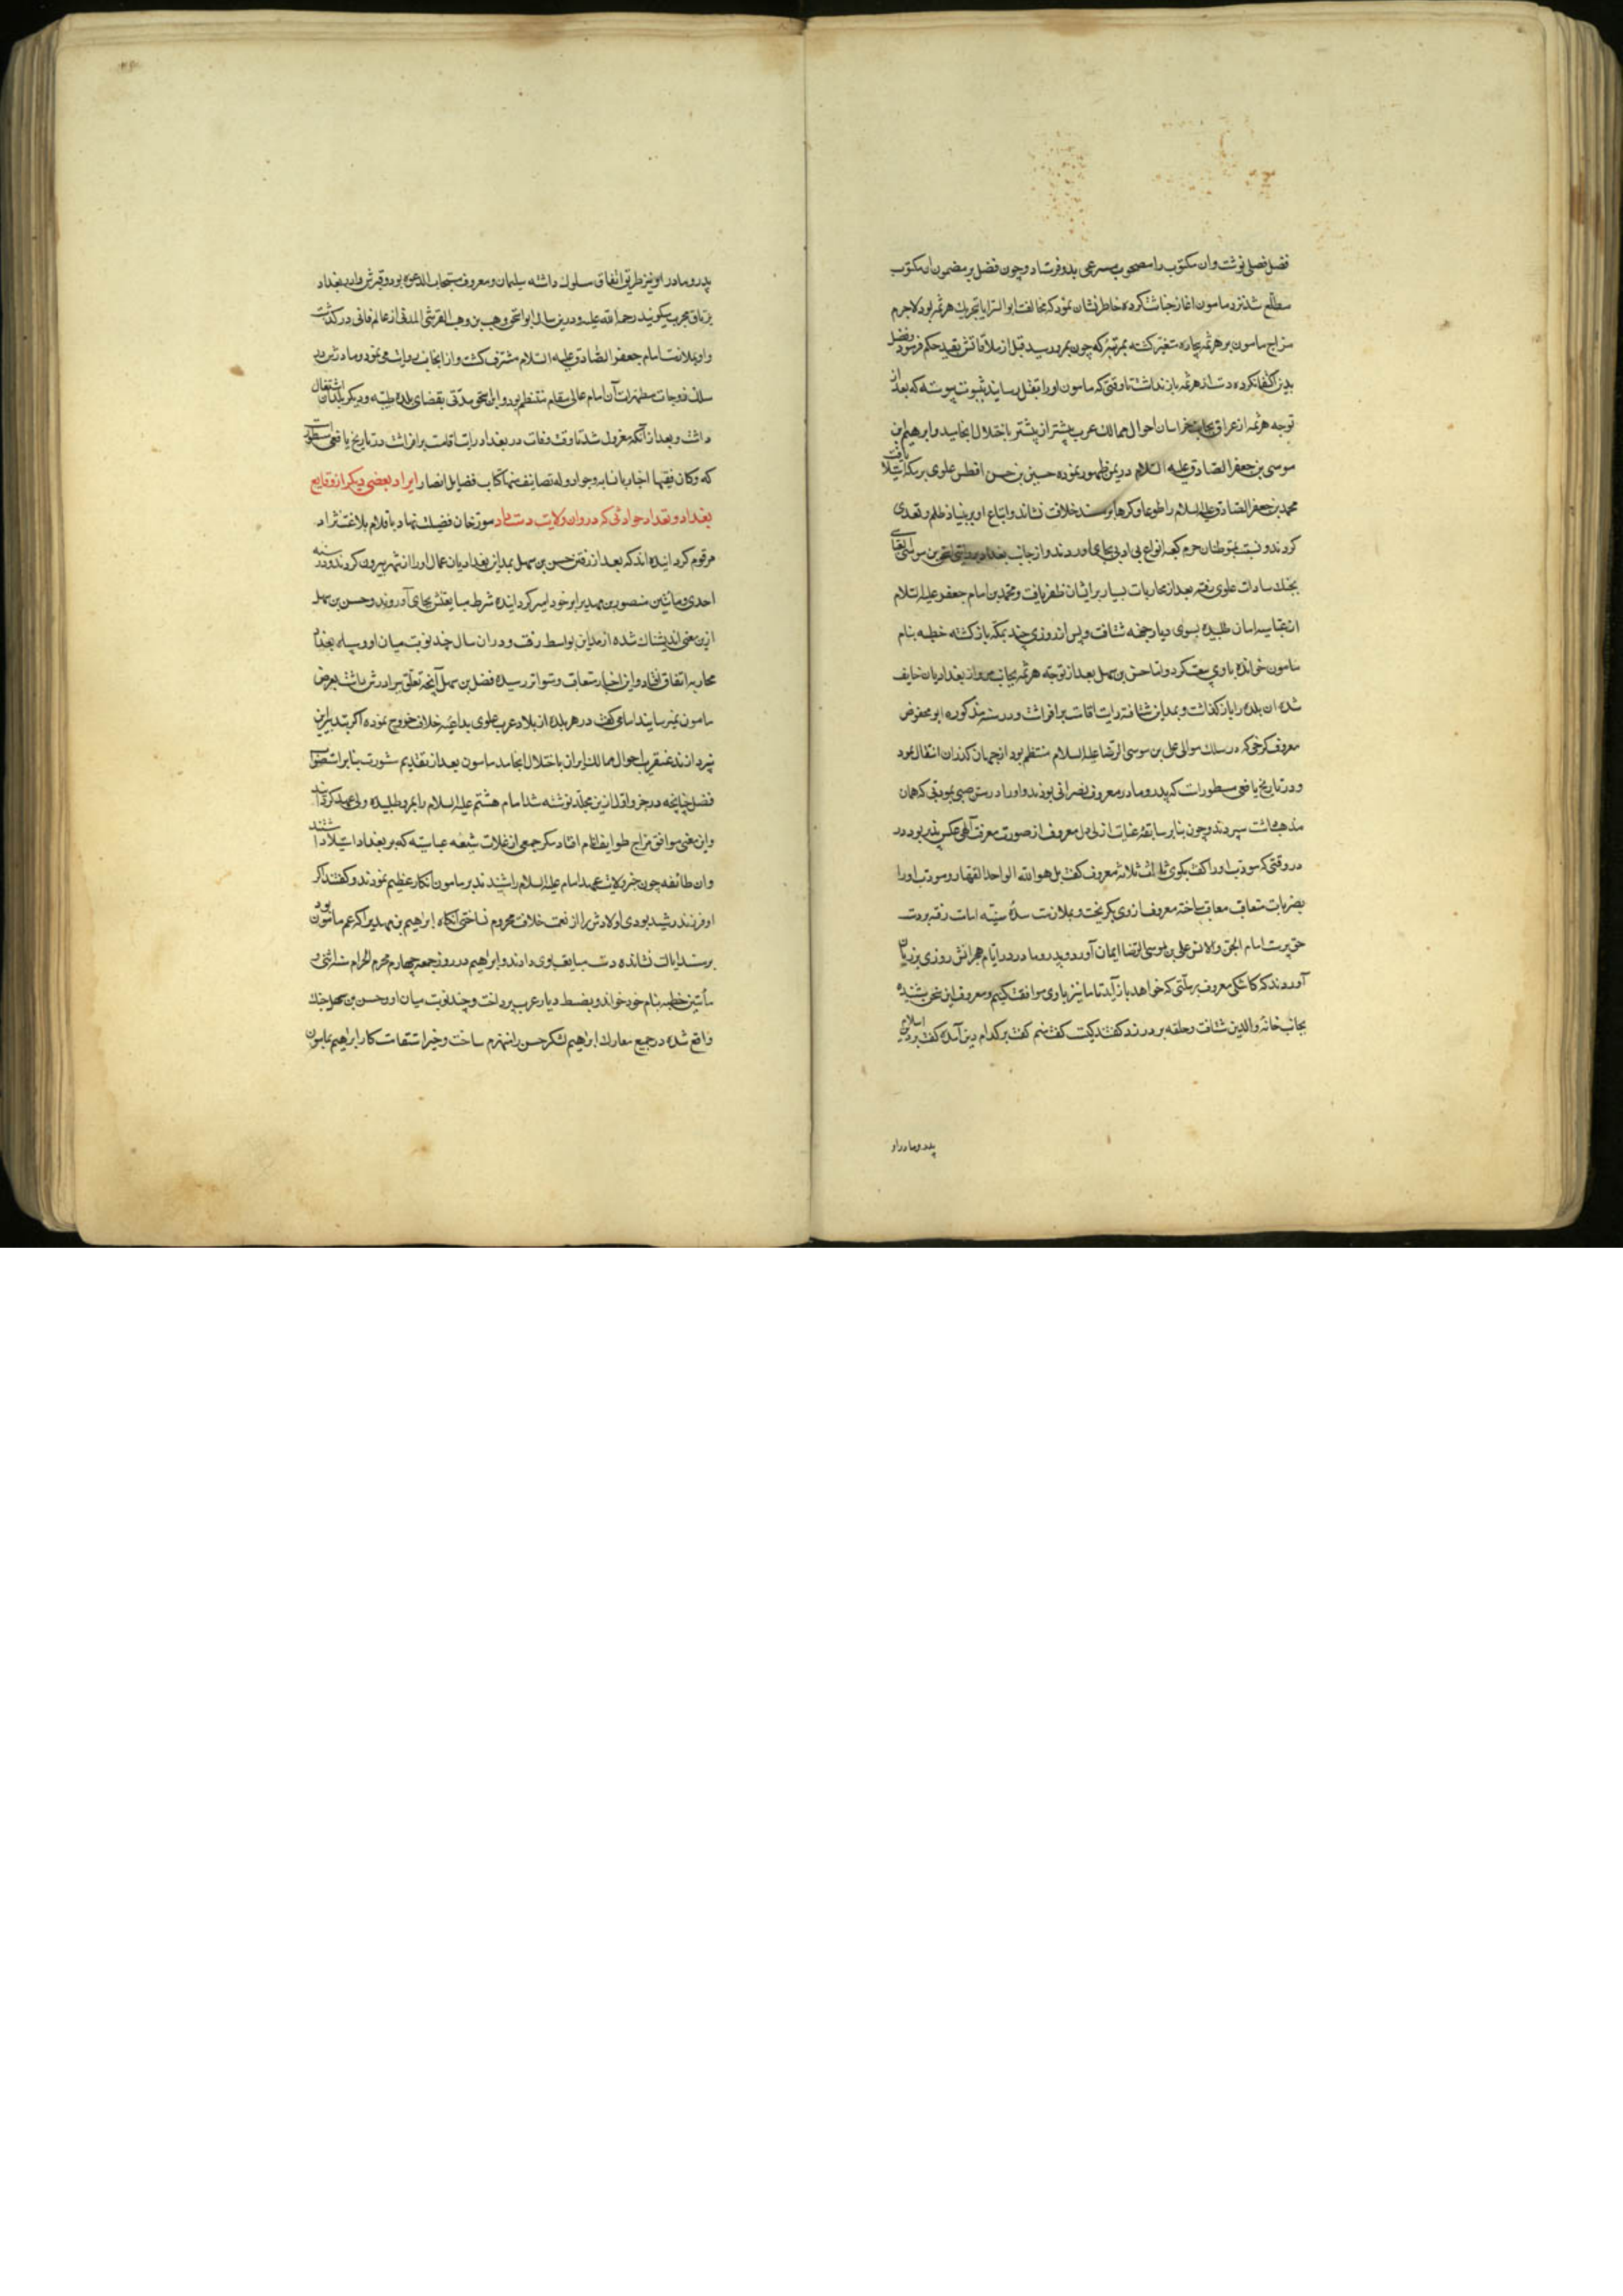 فضل فصلی نوشت وان مکتوب را مصحوب مسرعی بدو فرستاد و چون فضل بر مضمون ان مکتوب
مطلع شد نزد مامون اغاز خباثت کرده خاطر نشان نمود که مخالفت ابو السرایا بتحریک هرثمه بود لاجرم
مزاج مامون بر هرثمه بیچاره متغیر کشته بمرتبهٔ که چون بمرو رسید قبل از ملاقاتش بقید حکم فرمود و فضل
بدین اکتفا نکرده دست از هرثمه باز نداشت تا وقتی که مامون او را بقتل رسانید بثبوت پیوسته که بعد از
توجه هرثمه از عراق بجانب خراسان احوال ممالک عرب بیشتر از پیشتر باختلال انجامید و ابرهیم بن
موسی بن جعفر الصادق علیه السلام در یمن ظهور نموده حسین بن حسن افطس علوی بر مکه استیلا یافت
محمد بن جعفر الصادق علیه السلام را طوعا و کرها بر مسند خلافت نشاند و اتباع او بر بنیاد ظلم و تعدی
کردند و نسبت بمتوطنان حرم کعبه انواع بی ادبی بجای اوردند و از جانب بغداد اسحق بن موسی
بجنک سادات علوی رفته بعد از محاربات بسیار بر ایشان ظفر یافت و محمد بن امام جعفر علیه السلام
از عباسیه امان طلبیده بسوی دیار جحفه شتافت و پس از روزی چند بمکه باز کشته خطبه بنام
مامون خوانده با وی بیعت کرد و اما حسن بن سهل بعد از توجه هرثمه بجانب مرو از بغدادیان خایف
شده ان بلده را باز کذاشت و بمداین شتافته رایت اقامت برافراشت و در سنه مذکوره ابو محفوض
معروف کرخی که در سلک موالی علی بن موسی الرضا علیه السلام منتظم بود از جهان کذران انتقال نمود
و در تاریخ یافعی مسطورست که پدر و مادر معروف نصرانی بودند و او را در سن صبی بمودبی که همان
مذهب داشت سپردند و چون بنابر سابقهٔ عنایت ازلی دل معروف از صورت معرفت الهی عکس پذیر بود در
در وقتی که مودب او را کفت بکوی ثالث ثلاثه معروف کفت بل هو الله الواحد القهار و مودب او را
بضربات متعاقب معاقب ساخته معروف از وی بکریخت و بملازمت سدهٔ سنیّه امامت رفته بر دست
حق پرست امام الجن والانس علی بن موسی الرضا ایمان آورد و پدر و مادر در ایام هجرانش روزی بر زبان
آوردند که کاشکی معروف بر ملتی که خواهد باز آید تا ما نیز با وی موافقت کنیم و معروف این سخن شنیده
بجانب خانهٔ والدین شتافت و حلقه بر در زد کفتند کیست کفت منم کفت بر کدام دین آمدهٔ کفت بر دین اسلام
پدر و مادر او
پدر و مادر او نیز طریق اتفاق سلوک داشته مسلمان و معروف مستجاب الدعوه بود و قبرش را در بغداد
تریاق مجرب میکویند رحمة الله علیه و درین سال ابو البختری وهب بن وهب القرشی المدنی از عالم فانی درکذشت
و او بملازمت امام جعفر الصادق علیه السلام مشرف کشت و از انجناب روایت می نمود و مادرش در
سلک زوجات مطهرات آن امام عالی مقام منتظم بود و ابو البختری مدتی بقضای بلده طیبه و دیکر بلدان اشتغال
داشت و بعد از آنکه معزول شد تا وقت وفات در بغداد رایت اقامت برافراشت در تاریخ یافعی مسطورست
که وکان فقیها اخباریا نسابه وجوادا وله تصانیف منها کتاب فضایل انصار ایراد بعضی دیکر از وقایع
بغداد و تعداد حوادثی که در وان ولایت دست داد مورخان فضیلت نهاد باقلام بلاغت نژاد
مرقوم کردانیده اند که بعد از رفتن حسن بن سهل بمداین بغدادیان عمال او را از شهر بیرون کردند و در سنه
احدی و مائتین منصور بن مهدی را بر خود امیر کردانیده شرط مبایعتش بجای آوردند و حسن بن سهل
ازین معنی اندیشناک شده از مداین بواسط رفت و در ان سال چند نوبت میان او و سپاه بغداد
محاربه اتفاق افتاد و این اخبار متعاقب و متواتر رسیده فضل بن سهل آنچه تعلق ببرادرش داشت بعرض
مامون نمیرسانید اما می کفت در هر بلده از بلاد عرب علوی بداعیه خلاف خروج نموده اکر بتدبیر این
نپردازند عنقریب احوال ممالک ایران باختلال انجامد مامون بعد از تقدیم مشورت بنابر استصواب
فضل چنانچه در جزو اول ازین مجلد نوشته شد امام هشتم علیه السلام را بمرو طلبیده ولی عهد کردانید
و این معنی موافق مزاج طوایف انام افتاد مکر جمعی از غلات شیعه عباسیه که بر بغداد استیلا داشتند
وان طائفه چون خبر ولایت عهد امام علیه السلام را شنیدند بر مامون انکار عظیم نمودند و کفتند اکر
او فرزند رشید بودی اولادش را از نعمت خلافت محروم نساختی آنکاه ابراهیم بن مهدی را که عم مامون بود
بر مسند ایالت نشانده دست مبایعت باوی دادند و ابراهیم در روز جمعه چهارم محرم الحرام سنه اثنی و
مأتین خطبه بنام خود خواند و بضبط دیار عرب پرداخت و چند نوبت میان او و حسن بن سهل جنک
واقع شده در جمیع معارک ابراهیم لشکر حسن را منهزم ساخت و خبر استقامت کار ابراهیم بمامون